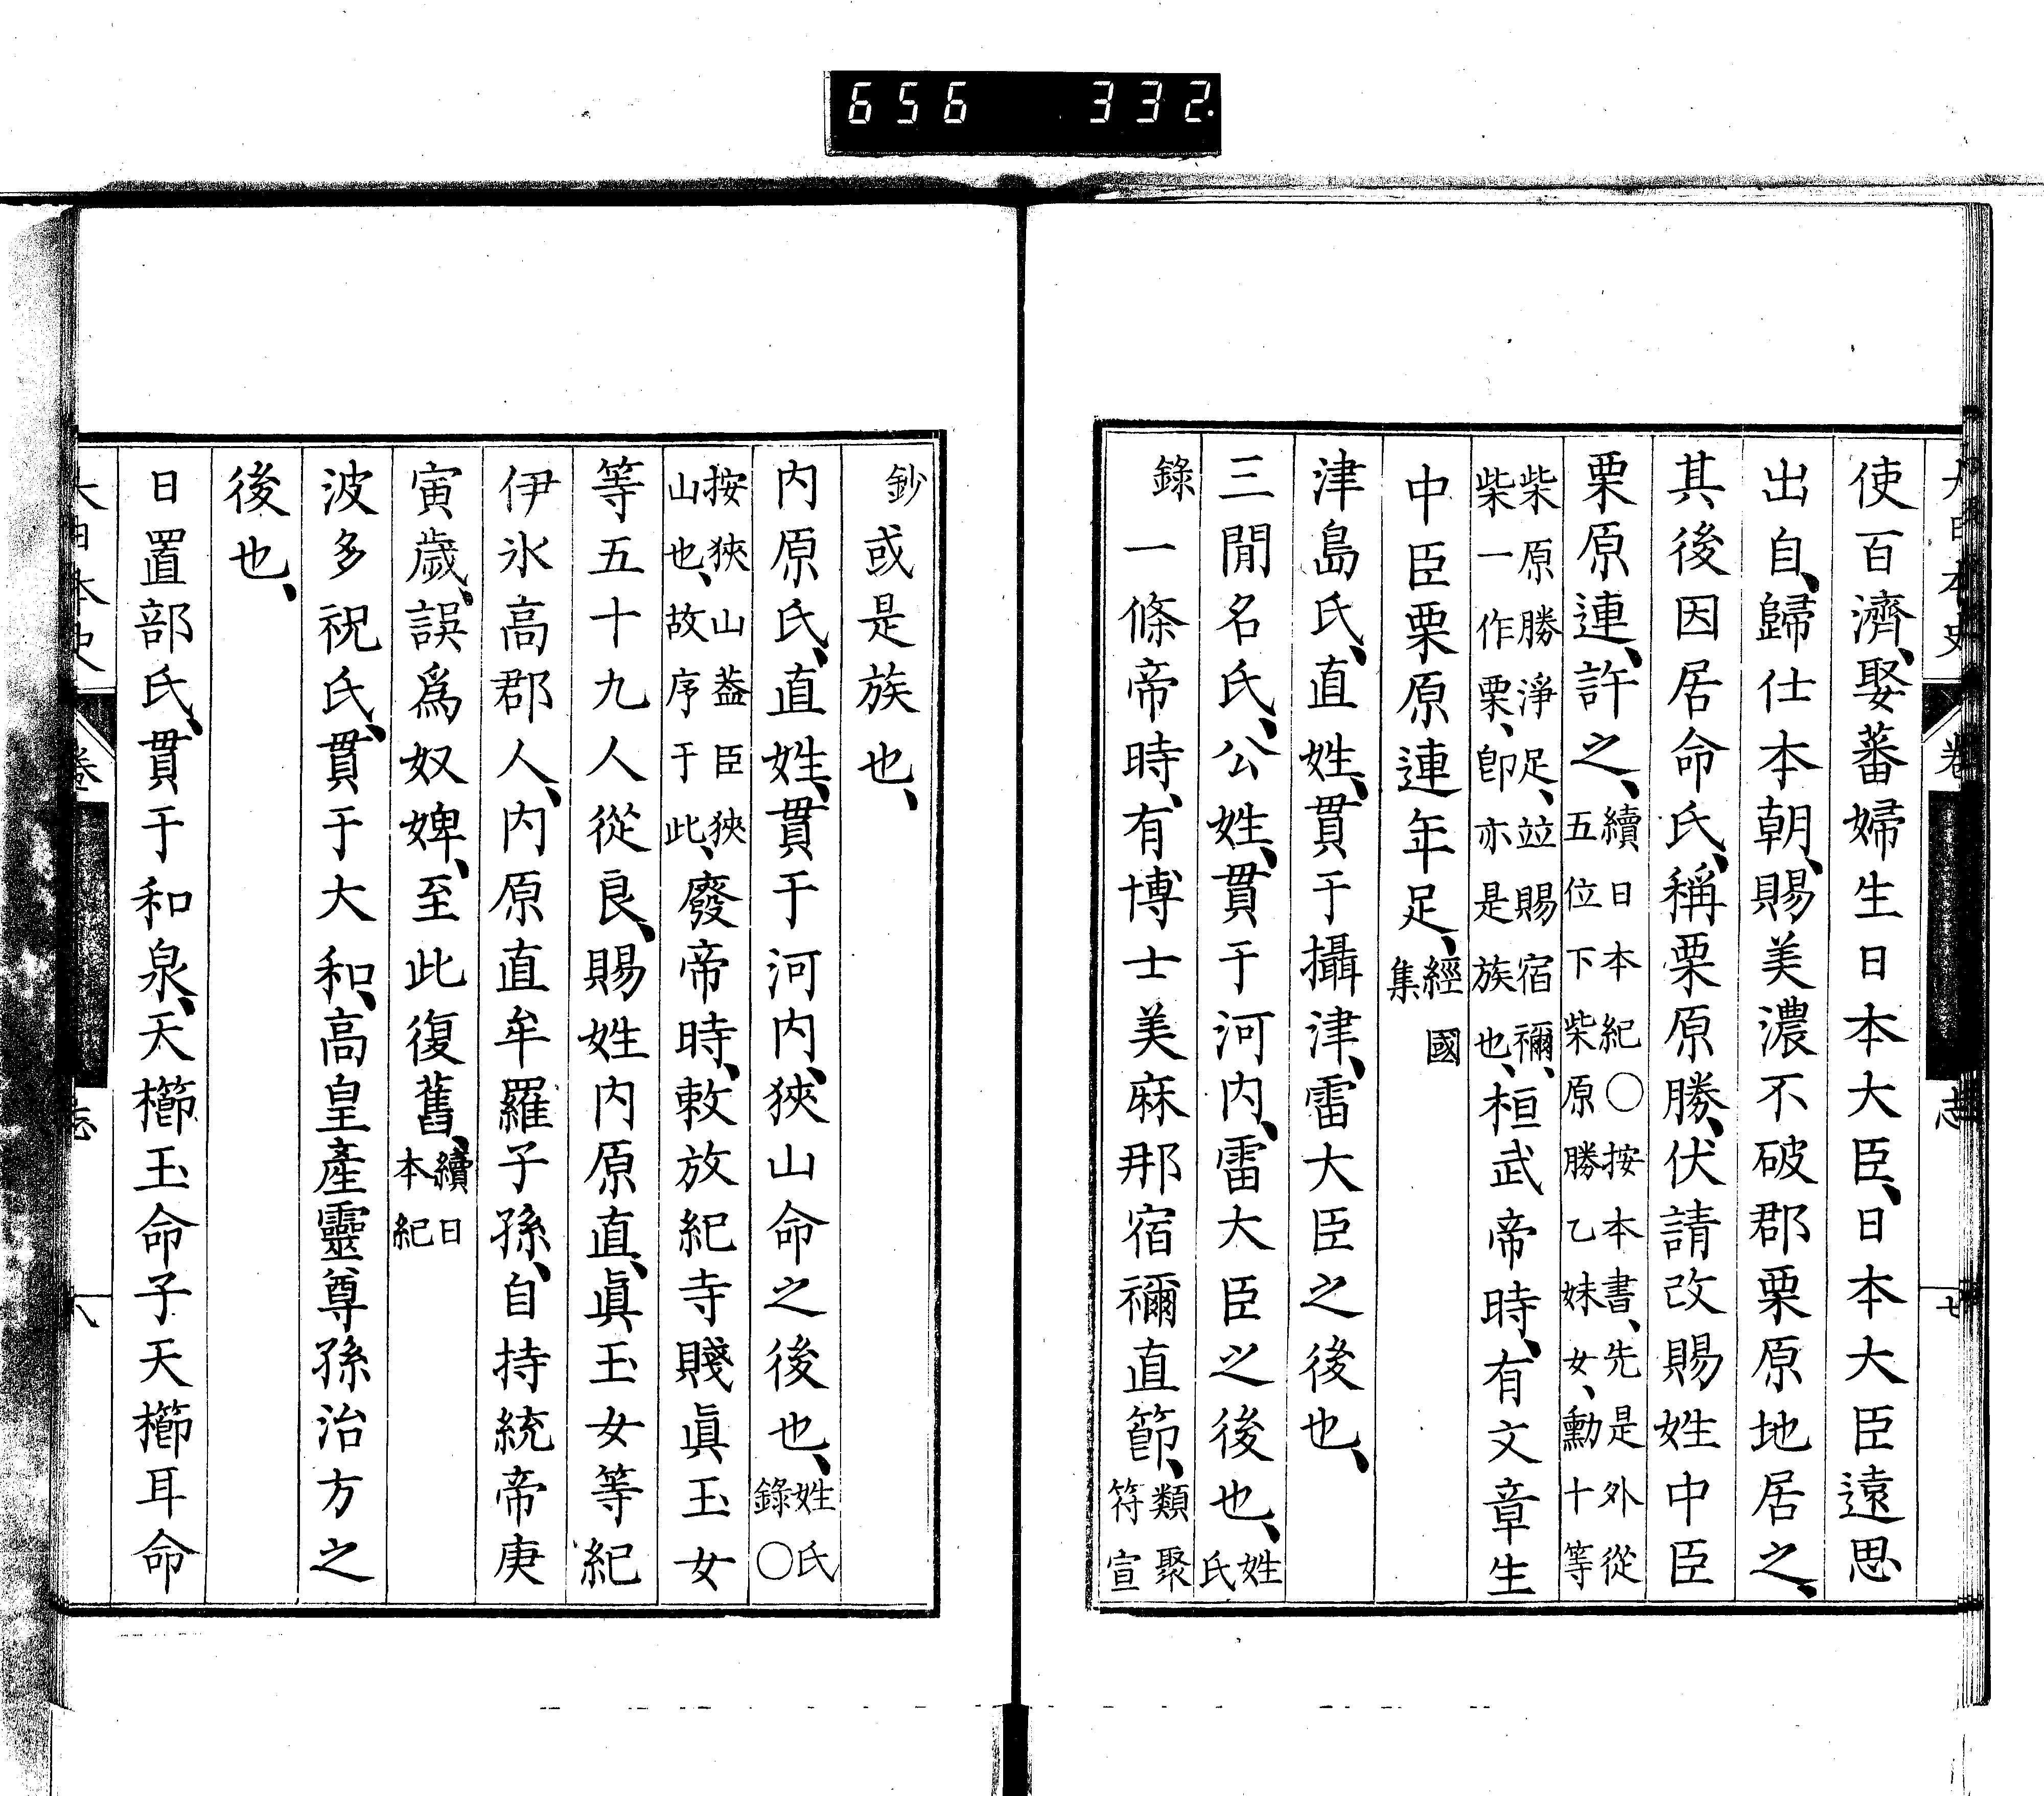 656 332.
大日本史 卷 志 七
使百濟、娶蕃婦生日本大臣、日本大臣遠思
出自、歸仕本朝、賜美濃不破郡栗原地居之、
其後因居命氏、稱栗原勝、伏請改賜姓中臣
栗原連、許之、續日本紀○按本書、先是外從五位下柴原勝乙妹女、勳十等
柴原勝淨足、竝賜宿禰、柴一作栗、卽亦是族也、桓武帝時、有文章生
中臣栗原連年足、經國集
津島氏、直姓、貫于攝津、雷大臣之後也、
三閒名氏、公姓、貫于河內、雷大臣之後也、姓氏
錄一條帝時、有博士美麻那宿禰直節、類聚符宣
鈔或是族也、
內原氏、直姓、貫于河內、狹山命之後也、姓氏錄○
按狹山葢臣狹山也、故序于此、廢帝時、敕放紀寺賤眞玉女
等五十九人從良、賜姓內原直、眞玉女等紀
伊氷高郡人、內原直牟羅子孫、自持統帝庚
寅歲、誤爲奴婢、至此復舊、續日本紀
波多祝氏、貫于大和、高皇產靈尊孫治方之
後也、
日置部氏、貫于和泉、天櫛玉命子天櫛耳命
大日本史 卷 志 八